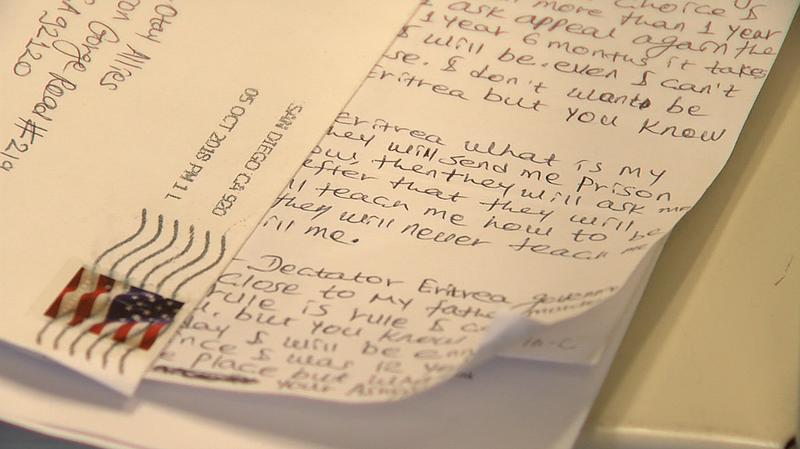 Otay Allies
George Road #219
CA 92120
SAN DIEGO CA 920
05 OCT 2018 PM 1 L
choice I
more than 1 year
ask appeal again the
1 year 6 months it takes
I will be even I can't
se. I don't want be
Eritrea but you know
Eritrea what is my
they will send me Prison
then they will ask me
after that they will be
teach me how to be
they will never teach me
ill me.
Dectator Eritrea governm
close to my father
rule is rule I c
but you know
day I will be
ince I was 12 ye
e place but
your